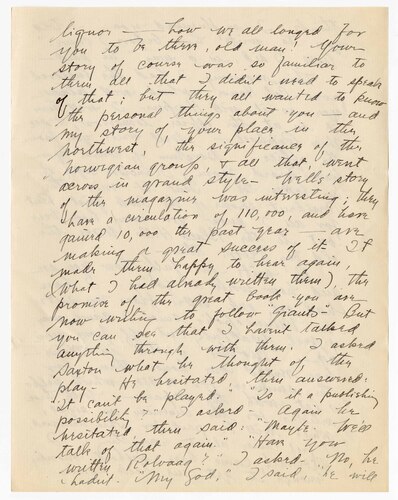 liquor — how we all longed for
you to be there, old man! Your
story of course was so familiar to
them all that I didn't need to speak
of that; but they all wanted to know
the personal things about you — and
my story of your place in the
northwest, the significance of the
Norwegian group, & all that, went
across in grand style — Wells' story
of the magazine was interesting; they
have a circulation of 110,000, and have
gained 10,000 the past year — are
making a great success of it. It
made them happy to hear again,
(what I had already written them), the
promise of the great book you are
now writing to follow "Giants" — But
you can see that I haven't talked
anything through with them. I asked
Saxton what he thought of the
play — He hesitated, then answered:
"It can't be played." "Is it a publishing
possibility?" I asked. Again he
hesitated, then said: "Maybe. We'll
talk of that again." "Have you
written Rolvaag?" I asked. No, he
hadn't. "My God," I said, "he will